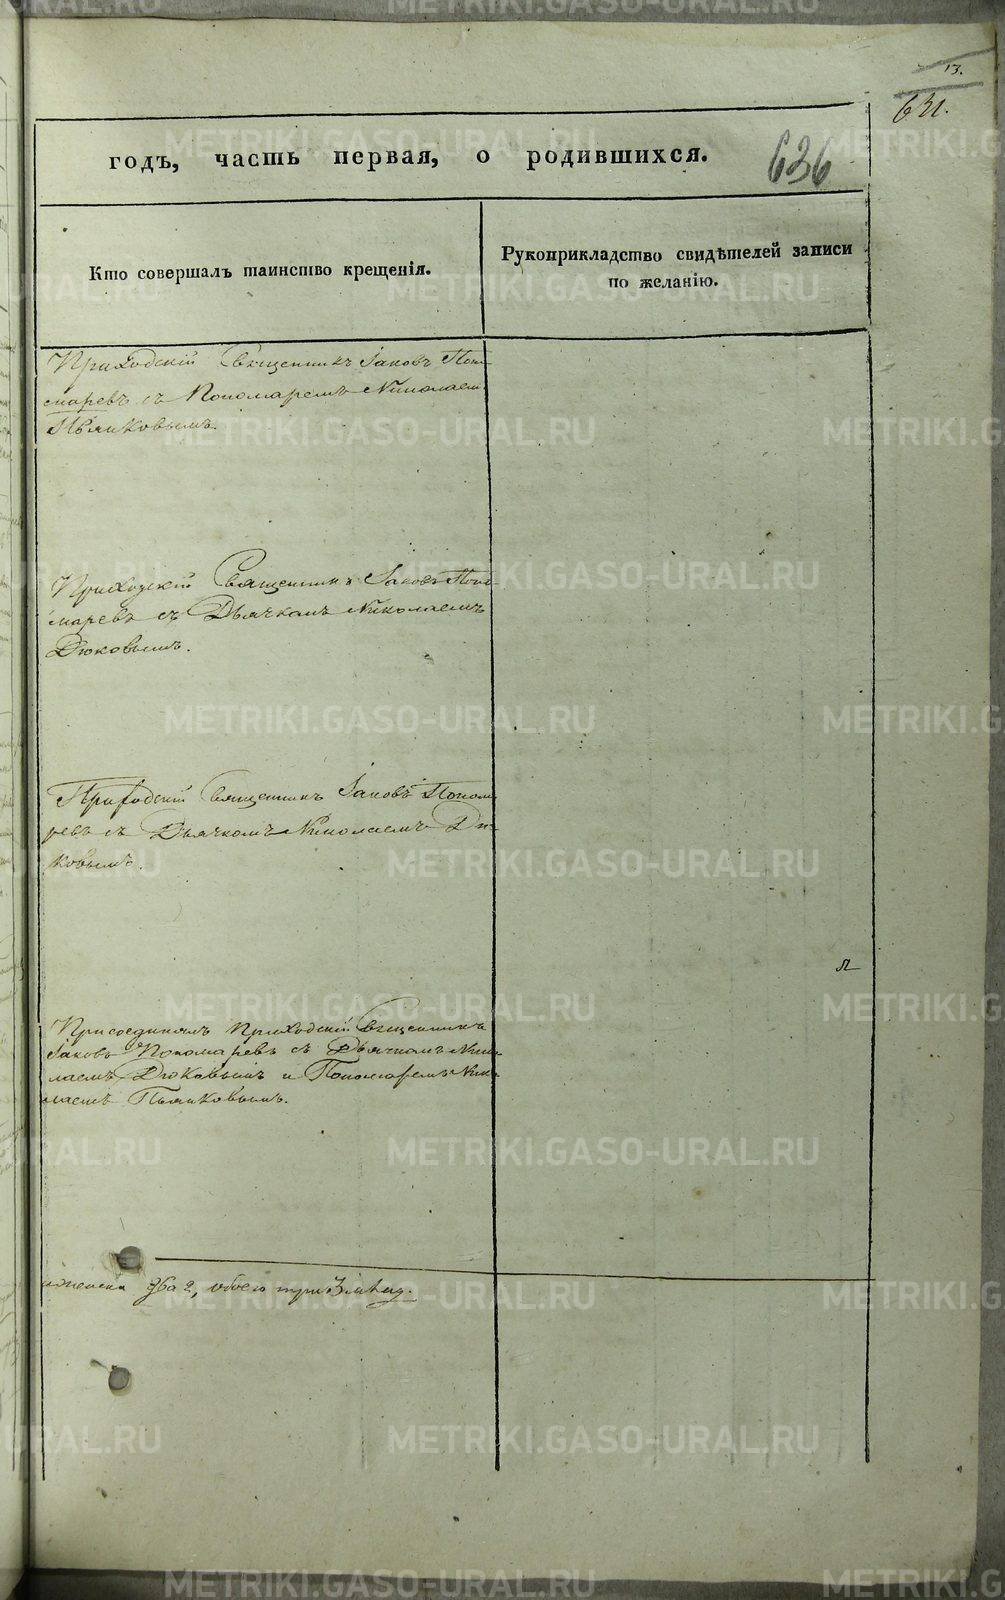 13.
631.
636
годъ, часть первая, о родившихся.
Кто совершалъ таинство крещенія.
Рукоприкладство свидѣтелей записи
по желанію.
Приходскій Священникъ Іаковъ Поно-
маревъ съ Пономаремъ Николаемъ
Пьянковымъ.
Приходскій Священникъ Іаковъ Поно-
маревъ съ Дьячкомъ Николаемъ
Дюковымъ.
Приходскій Священникъ Іаковъ Понома-
ревъ съ Дьячкомъ Николаемъ Дю-
ковымъ.
Присоединялъ Приходскій Священникъ
Іаковъ Пономаревъ съ Дьячкомъ Нико-
лаемъ Дюковымъ и Пономаремъ Нико-
лаемъ Пьянковымъ.
два 2, обоего три 3
METRIKI.GASO-URAL.RU